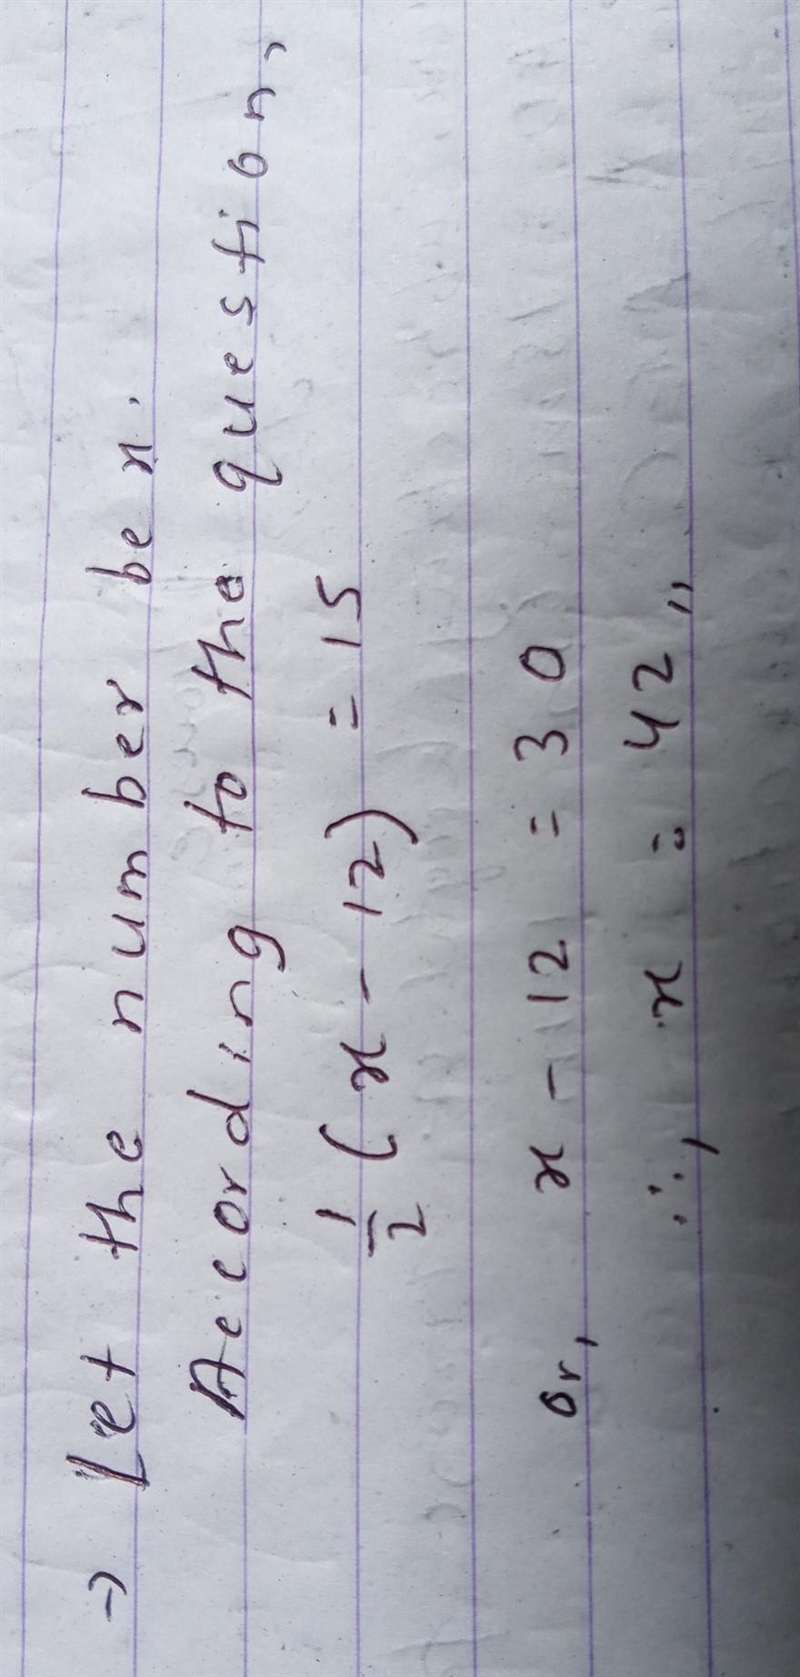 → Let the number be x.
According to the question,
1/2 (x - 12) = 15
or, x - 12 = 30
∴, x = 42 ,,